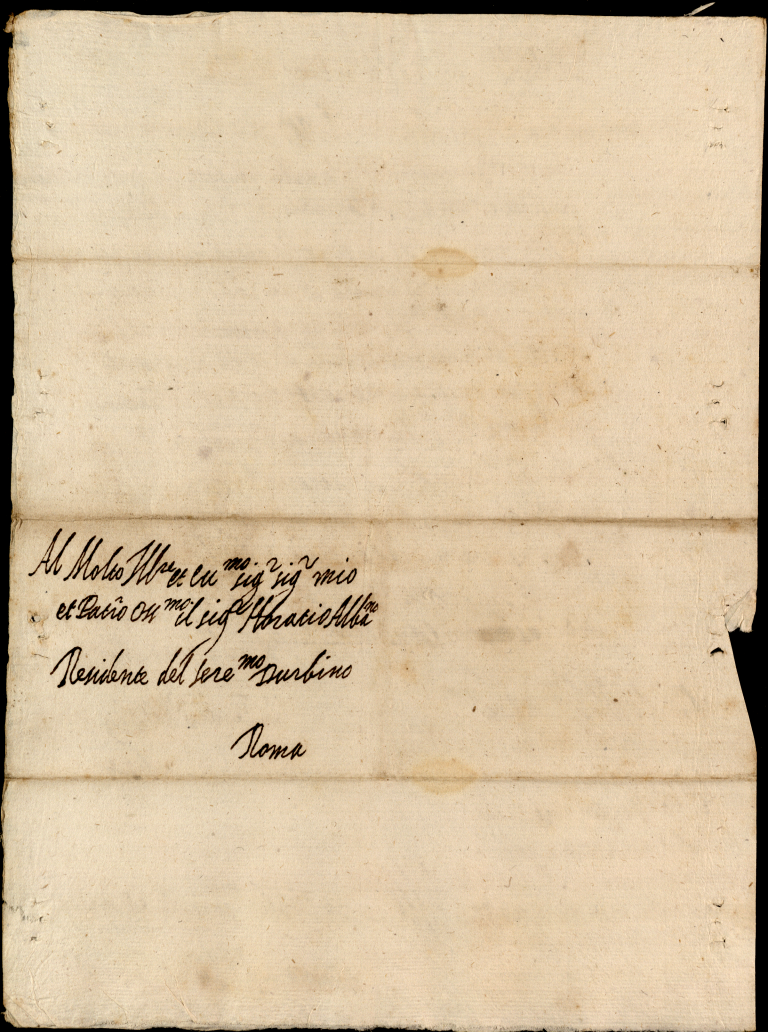 Al Molto Ill.re et ecc.mo sig.r sig.r mio
et Patrõ oss.mo il sig.r Horatio Alba.no
Residente del sere.mo Durbino
Roma